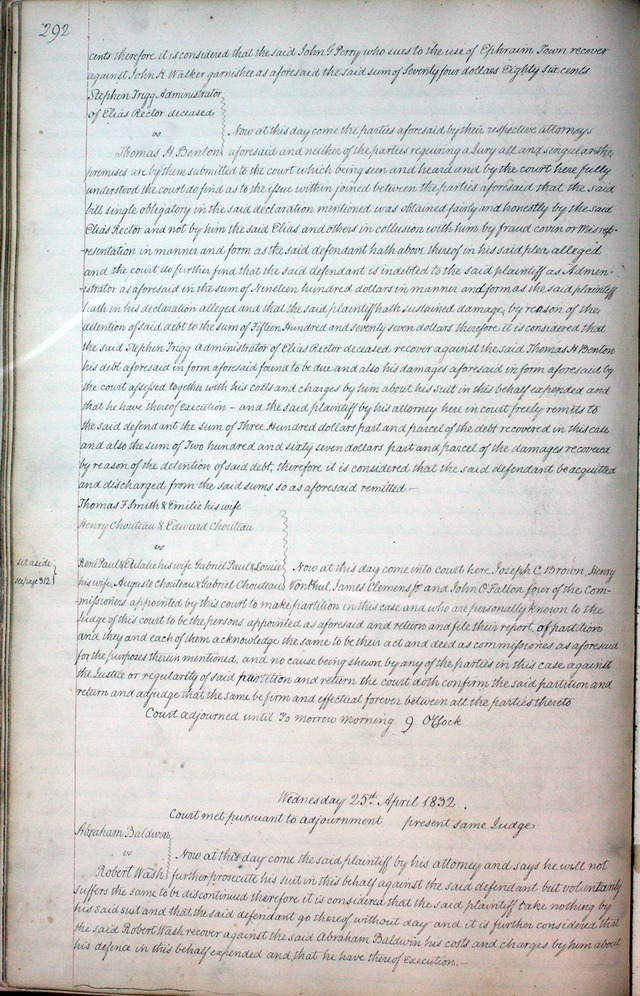 292
cents therefore it is considered that the said John G Perry who sues to the use of Ephraim Town recover
against John K Walker garnishee as aforesaid the said sum of Seventy four dollars Eighty six cents
Stephen Trigg Administrator
of Elias Rector deceased
vs
Now at this day come the parties aforesaid by their respective attorneys
Thomas H Benton aforesaid and neither of the parties requiring a Jury all and singular the
premises are by them submitted to the court which being seen and heard and by the court here fully
understood the court do find as to the issue within joined between the parties aforesaid that the said
bill single obligatory in the said declaration mentioned was obtained fairly and honestly by the said
Elias Rector and not by him the said Elias and others in collusion with him by fraud covin or Misrep-
-resentation in manner and form as the said defendant hath above thereof in his said plea alleged
and the court do further find that the said defendant is indebted to the said plaintiff as Admin-
-istrator as aforesaid in the sum of Nineteen hundred dollars in manner and form as the said plaintiff
hath in his declaration alleged and that the said plaintiff hath sustained damage by reason of the
detention of said debt to the sum of Fifteen Hundred and seventy seven dollars therefore it is considered that
the said Stephen Trigg administrator of Elias Rector deceased recover against the said Thomas H Benton
his debt aforesaid in form aforesaid found to be due and also his damages aforesaid in form aforesaid by
the court assessed together with his costs and charges by him about his suit in this behalf expended and
that he have thereof execution – and the said plaintiff by his attorney here in court freely remits to
the said defendant the sum of Three Hundred dollars part and parcel of the debt recovered in this case
and also the sum of Two hundred and sixty seven dollars part and parcel of the damages recovered
by reason of the detention of said debt, therefore it is considered that the said defendant be acquitted
and discharged from the said sums so as aforesaid remitted –
Thomas F Smith & Emilie his wife
Henry Chouteau & Edward Chouteau
vs
set aside
see page 312
René Paul & Eulalie his wife Gabriel Paul & Louise Now at this day come into court here Joseph C. Brown, Henry
his wife, Auguste Chouteau & Gabriel Chouteau Von Phul, James Clemens Jr and John O'Fallon four of the com-
-missioners appointed by this court to make partition in this case and who are personally known to the
Judge of this court to be the persons appointed as aforesaid and return and file their report of partition
and they and each of them acknowledge the same to be their act and deed as commissioners as aforesaid
for the purposes therein mentioned, and no cause being shewn by any of the parties in this case against
the Justice or regularity of said partition and return the court doth confirm the said partition and
return and adjudge that the same be firm and effectual forever between all the parties thereto
Court adjourned until To morrow morning 9 O'Clock
Wednesday 25th April 1832
Court met pursuant to adjournment present same Judge
Abraham Baldwin
vs
Now at this day come the said plaintiff by his attorney and says he will not
Robert Wash further prosecute his suit in this behalf against the said defendant but voluntarily
suffers the same to be discontinued therefore it is considered that the said plaintiff take nothing by
his said suit and that the said defendant go thereof without day and it is further considered that
the said Robert Wash recover against the said Abraham Baldwin his costs and charges by him about
his defence in this behalf expended and that he have thereof execution. –